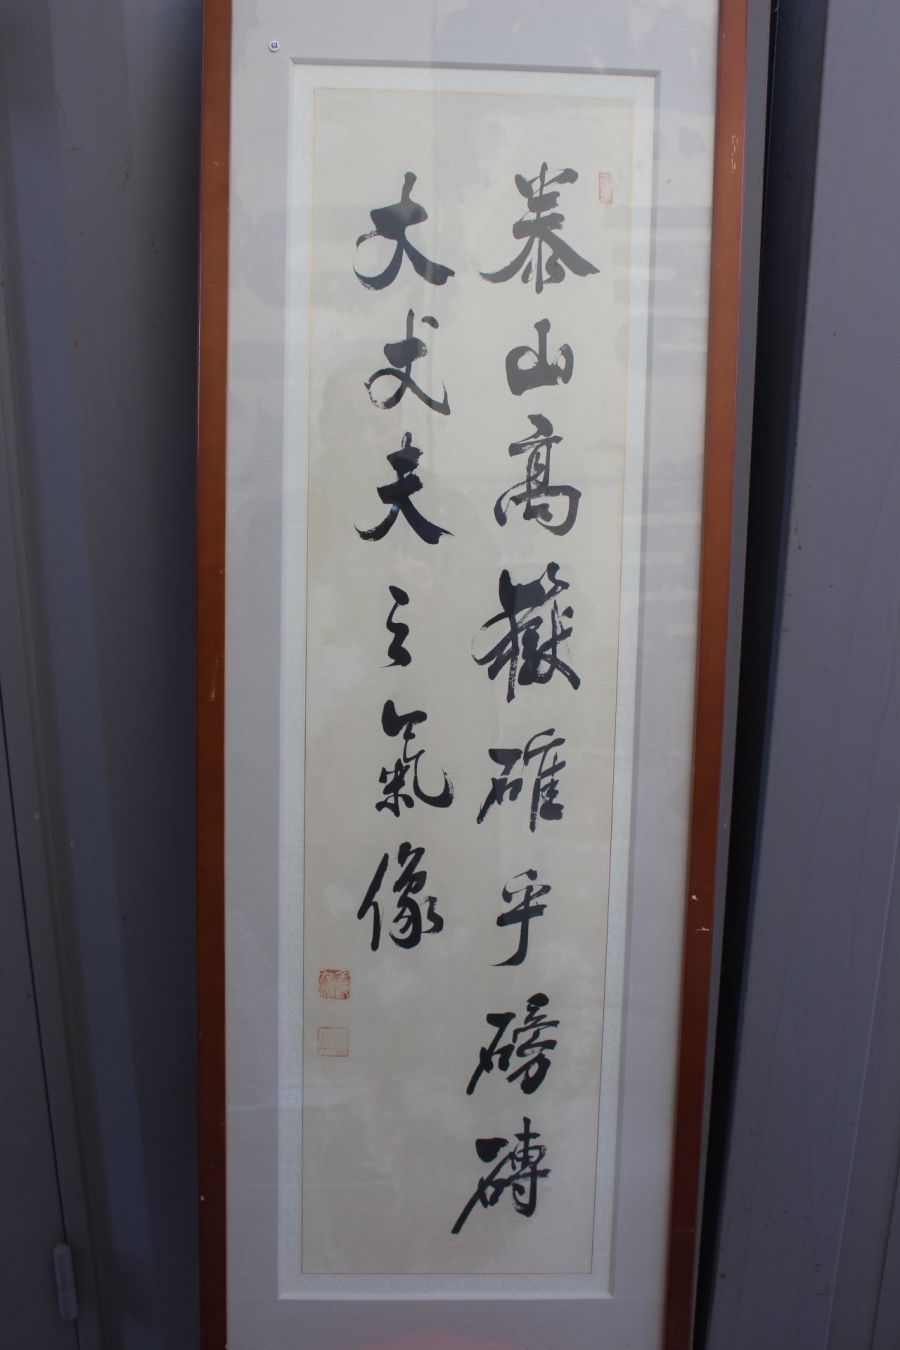 泰山高嶽確乎磅礴
大丈夫之氣像